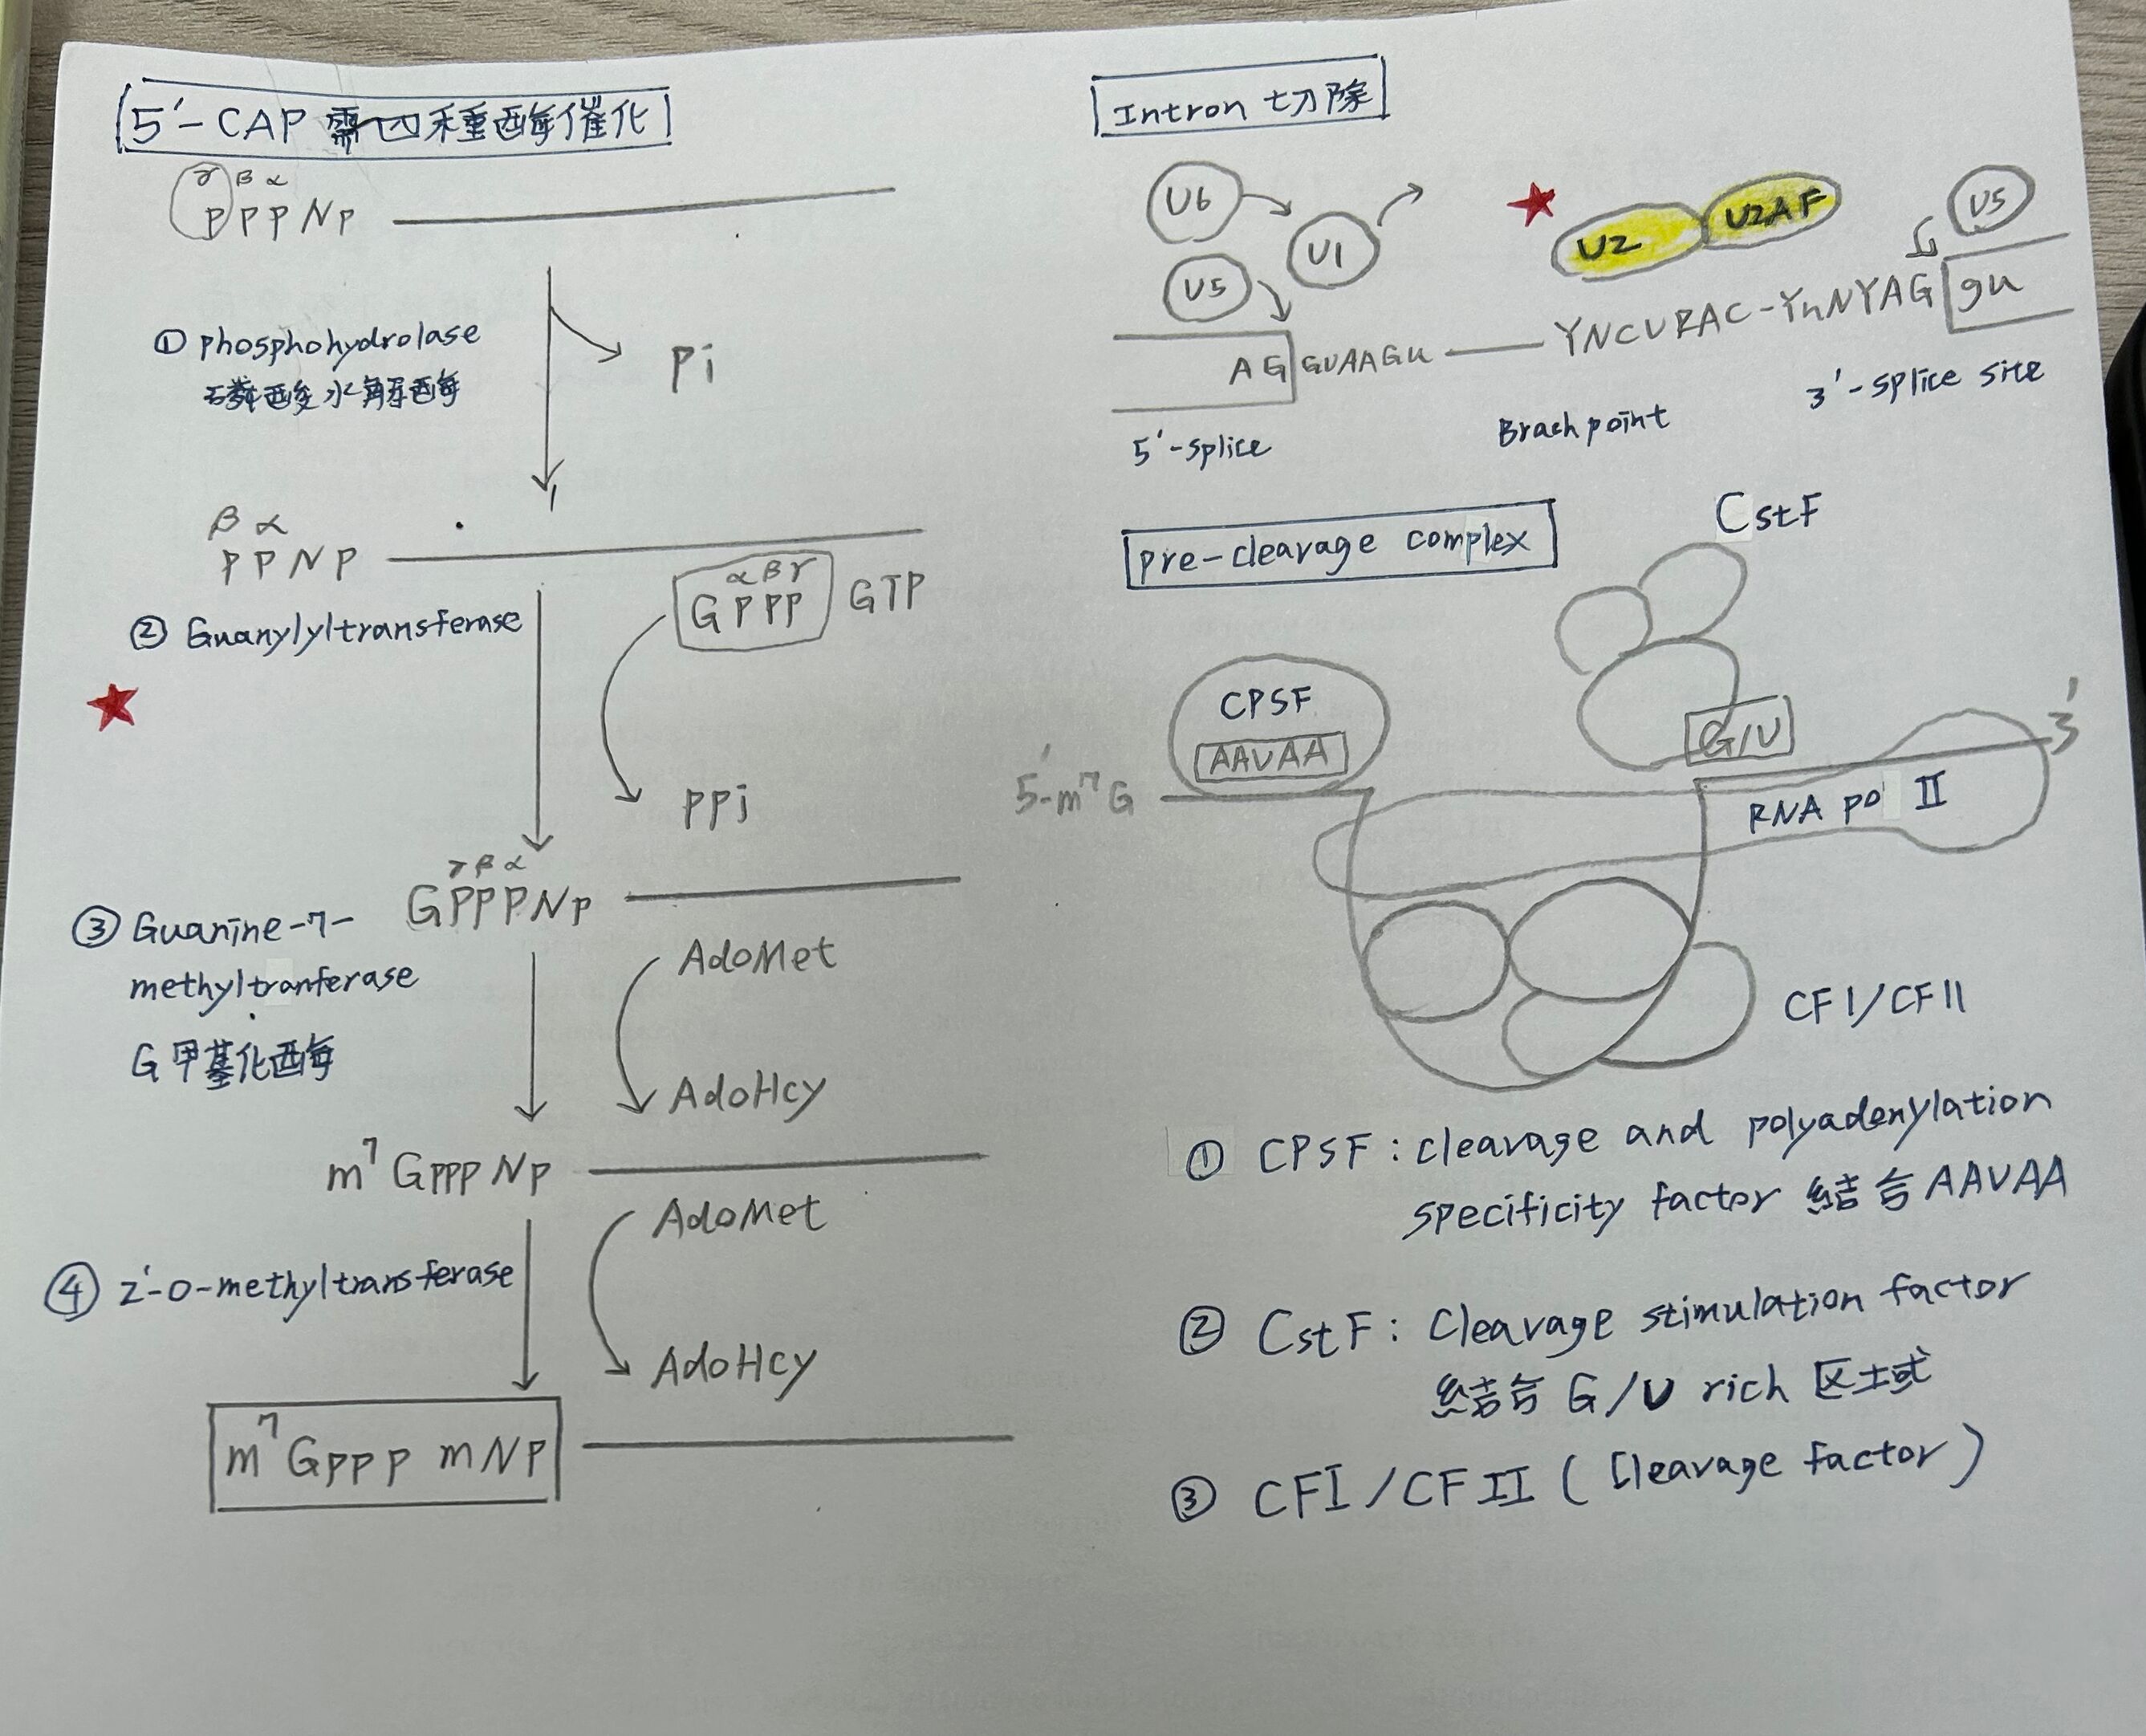 5'-CAP 需四種酶催化
γ β α
P P P N P
① phosphohydrolase
磷酸水解酶
Pi
β α
P P N P
② Guanylyltransferase
α β γ
G P P P GTP
PPi
γ β α
GPPPNP
③ Guanine-7-
methyltranferase
G甲基化酶
AdoMet
AdoHcy
m⁷GPPPNP
④ 2'-O-methyltransferase
AdoMet
AdoHcy
m⁷GPPP mNP
Intron 切除
U6
U1
U5
U2
U2AF
U5
AG GUAAGU
YNCURAC-YnNYAG gu
5'-splice
Brachpoint
3'-splice site
pre-cleavage complex
CstF
CPSF
AAUAA
G/U
5'-m⁷G
3'
RNA pol II
CF I/CF II
① CPSF : cleavage and polyadenylation
specificity factor 結合 AAUAA
② CstF : Cleavage stimulation factor
結合 G/U rich 区域
③ CFI/CF II ( Cleavage factor )